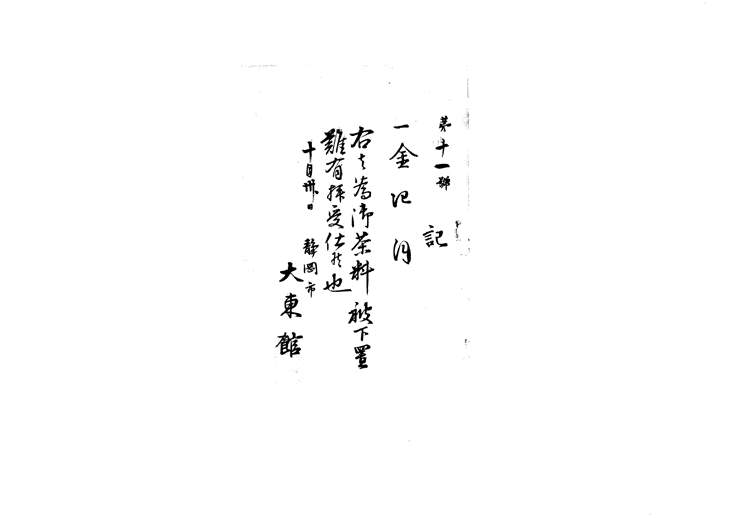 第十一號
記
一金 円
右 為御茶料被下置
難有拝受仕候也
十月卅日
静岡市
大東館